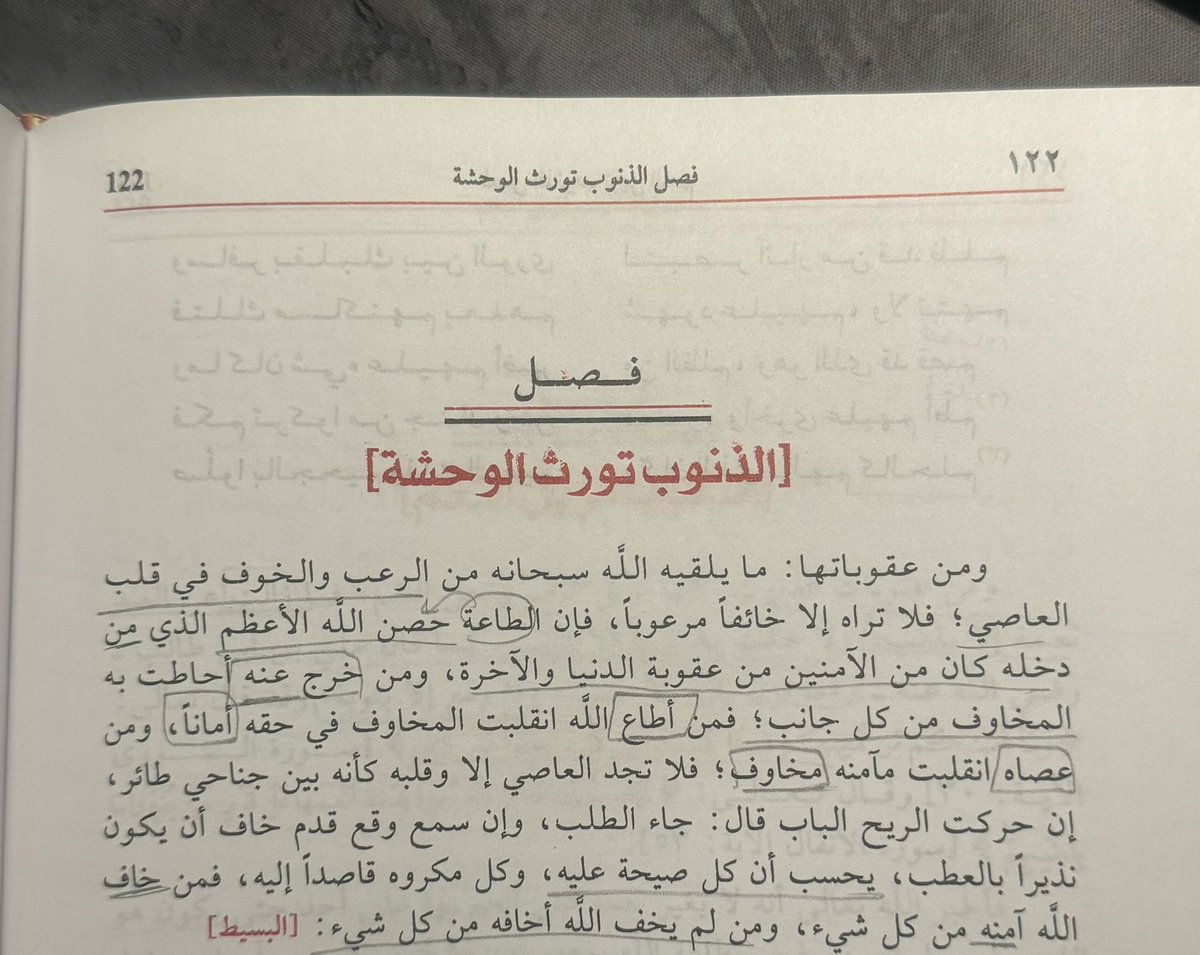 ١٢٢ فصل الذنوب تورث الوحشة 122
فصل
[الذنوب تورث الوحشة]
ومن عقوباتها: ما يلقيه اللَّه سبحانه من الرعب والخوف في قلب
العاصي؛ فلا تراه إلا خائفاً مرعوباً، فإن الطاعة حصن اللَّه الأعظم الذي من
دخله كان من الآمنين من عقوبة الدنيا والآخرة، ومن خرج عنه أحاطت به
المخاوف من كل جانب؛ فمن أطاع اللَّه انقلبت المخاوف في حقه أماناً، ومن
عصاه انقلبت مآمنه مخاوف؛ فلا تجد العاصي إلا وقلبه كأنه بين جناحي طائر،
إن حركت الريح الباب قال: جاء الطلب، وإن سمع وقع قدم خاف أن يكون
نذيراً بالعطب، يحسب أن كل صيحة عليه، وكل مكروه قاصداً إليه، فمن خاف
اللَّه آمنه من كل شيء، ومن لم يخف اللَّه أخافه من كل شيء: [البسيط]